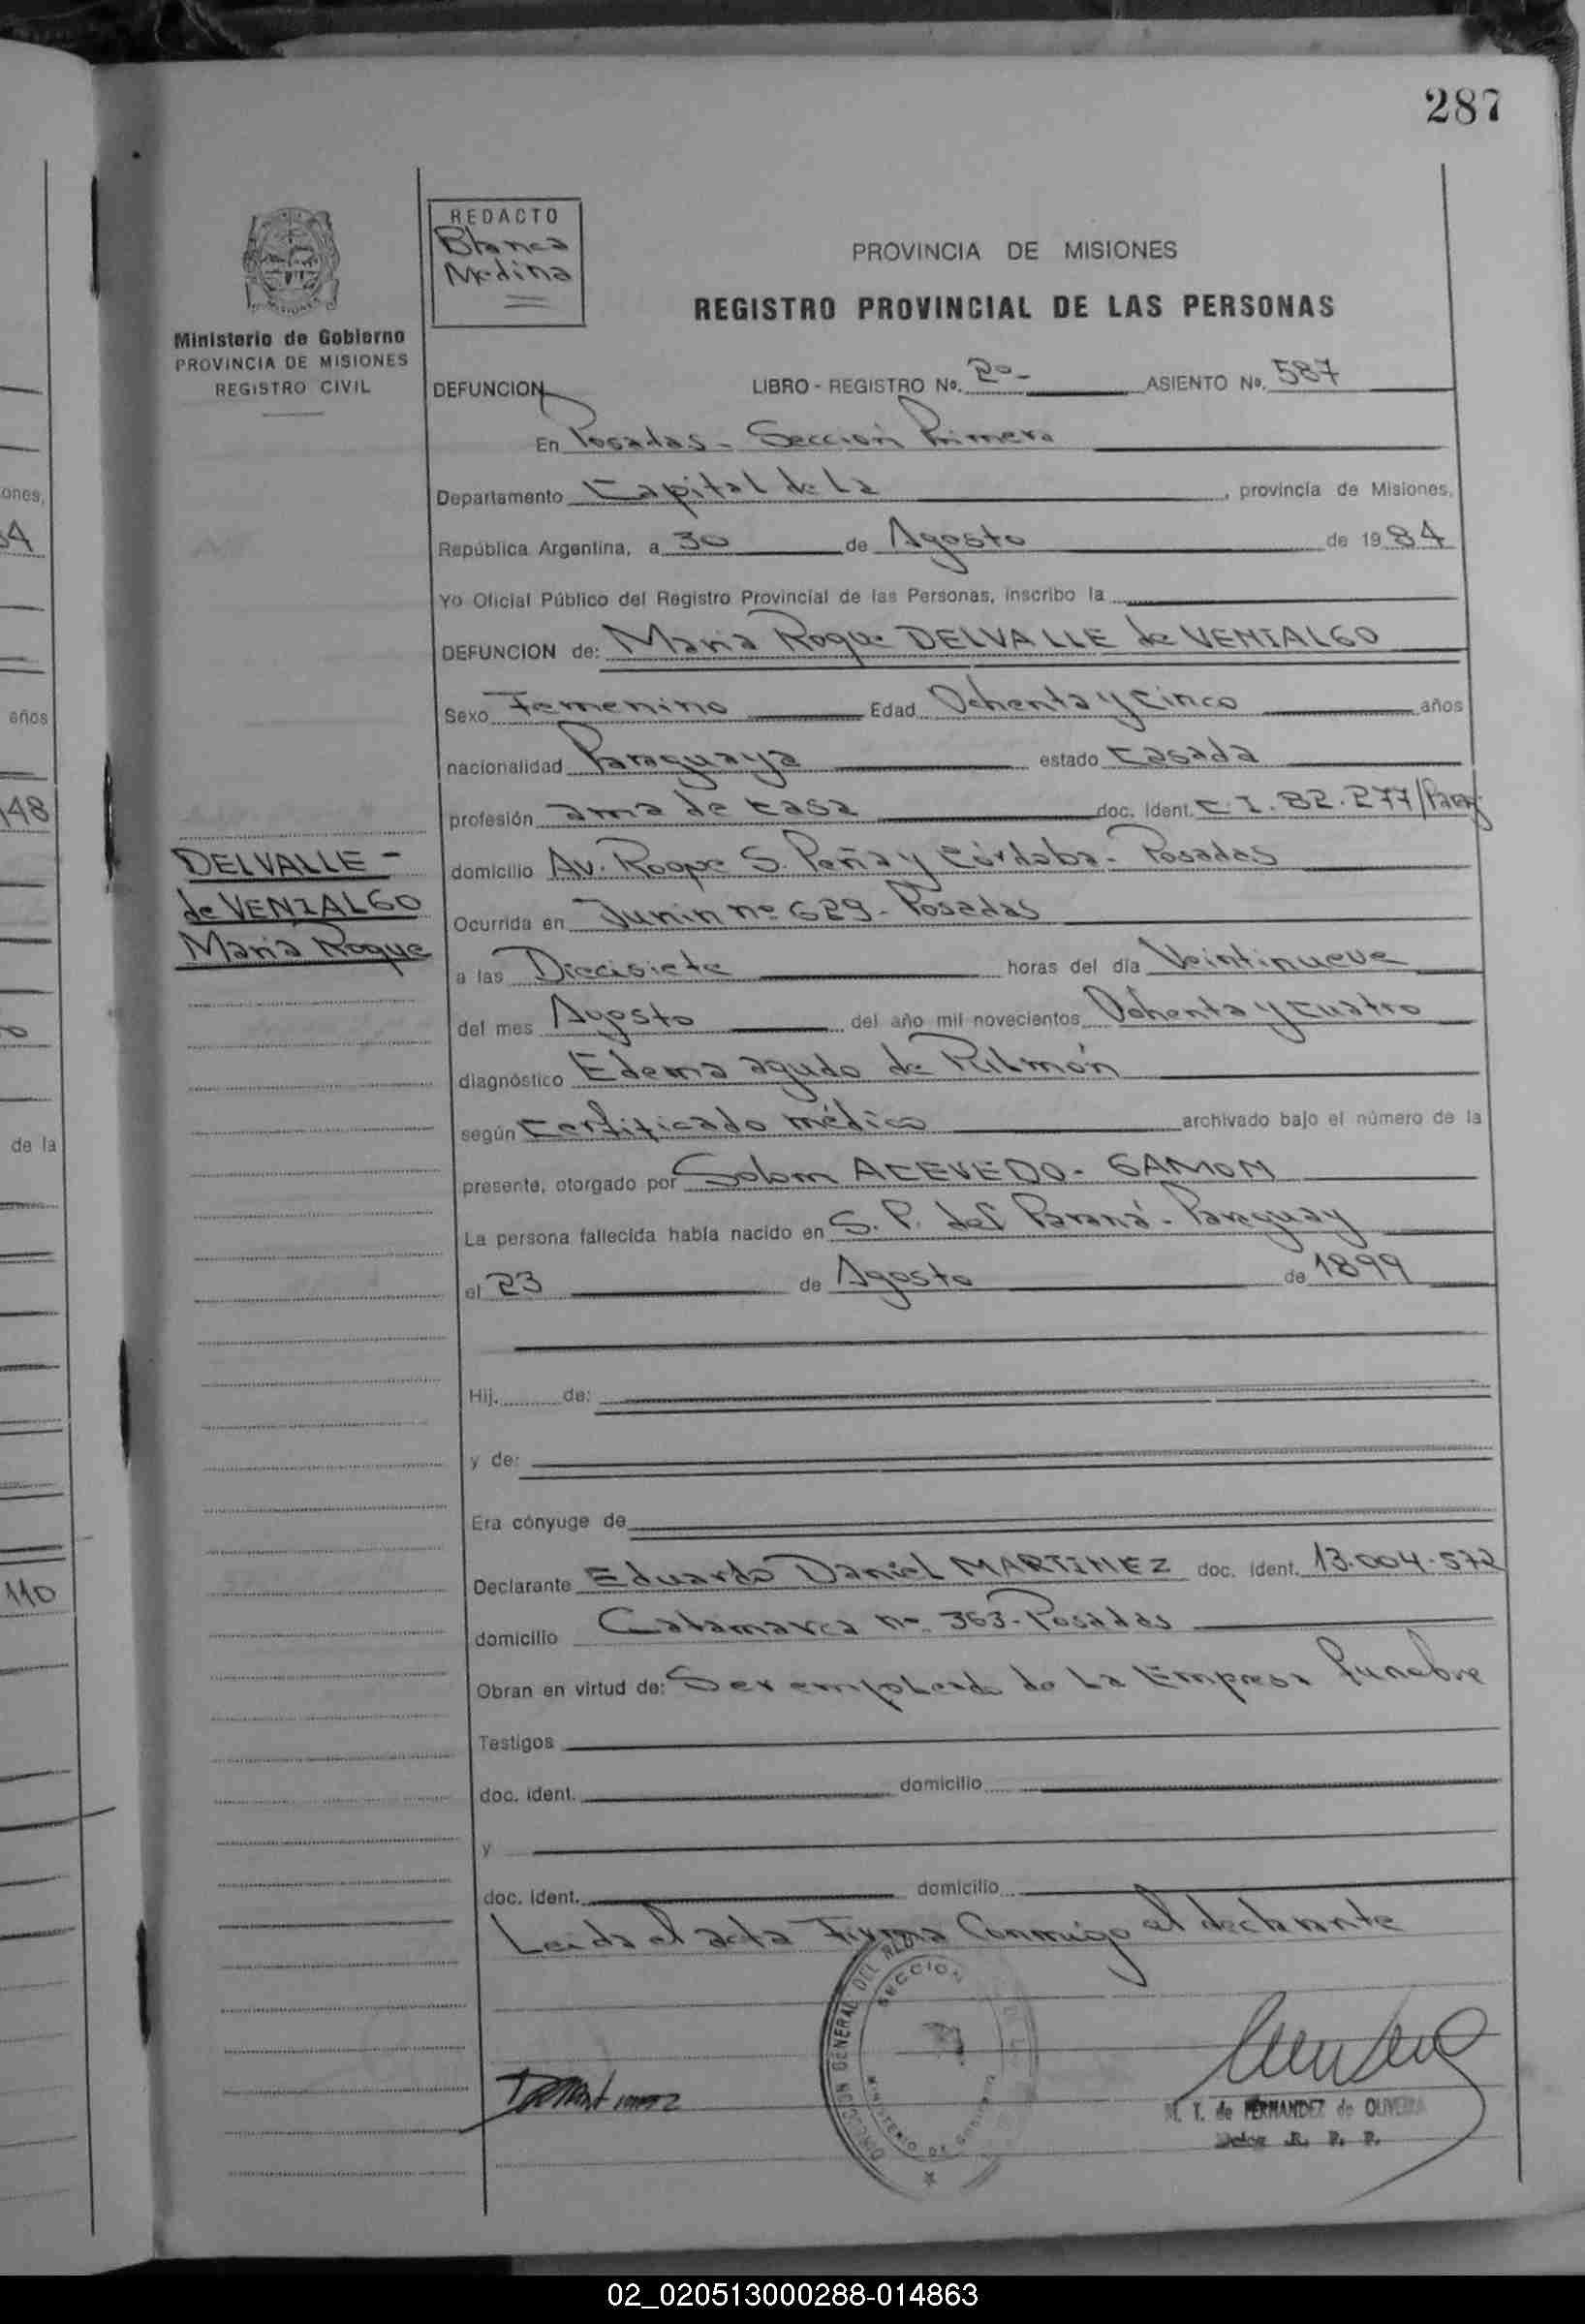 287
REDACTO
Blanca
Medina
Ministerio de Gobierno
PROVINCIA DE MISIONES
REGISTRO CIVIL
PROVINCIA DE MISIONES
REGISTRO PROVINCIAL DE LAS PERSONAS
DEFUNCION LIBRO - REGISTRO No. 2º- ASIENTO No. 587
En Posadas - Sección Primera
Departamento Capital de la , provincia de Misiones,
República Argentina, a 30 de Agosto de 1984
Yo Oficial Público del Registro Provincial de las Personas, inscribo la
DEFUNCION de: Maria Roque DELVALLE de VENIALGO
Sexo Femenino Edad Ochenta y cinco años
nacionalidad Paraguaya estado casada
profesión ama de casa doc. Ident. C.I. 82.277/Parag
domicilio Av. Roque S. Peña y Córdoba - Posadas
Ocurrida en Junin nº 629 - Posadas
a las Diecisiete horas del día Veintinueve
del mes Agosto del año mil novecientos Ochenta y cuatro
diagnóstico Edema agudo de Pulmón
según certificado médico archivado bajo el número de la
presente, otorgado por ACEVEDO - GAMON
La persona fallecida había nacido en S. P. del Paraná - Paraguay
el 23 de Agosto de 1899
Hij. de:
y de:
Era cónyuge de
Declarante Eduardo Daniel MARTINEZ doc. ident. 13.004.572
domicilio Catamarca nº 363 - Posadas
Obran en virtud de: Ser empleado de la Empresa funebre
Testigos
doc. ident. domicilio
y
doc. ident. domicilio
Leida el acta Firma Conmigo el declarante
DELVALLE -
de VENIALGO
Maria Roque
DIRECCION GENERAL DEL
SECCION
MINISTERIO DE GOBIERNO
M. T. de FERNANDEZ de OLIVEIRA
R. P. P.
ones,
84
años
148
de la
110
02_020513000288-014863